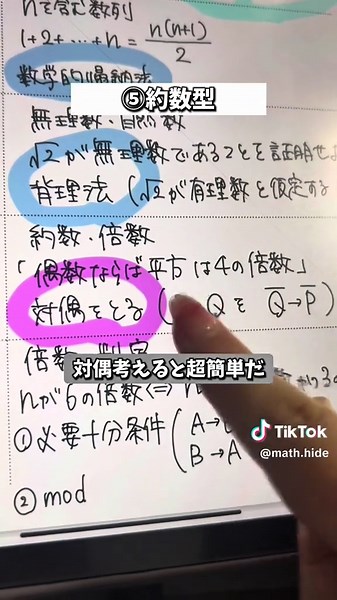 nを含む数列
1+2+…+n = n(n+1)/2
数学的帰納法
⑤約数型
無理数・自然数
√2が無理数であることを証明せよ
背理法 (√2が有理数と仮定する
約数・倍数
「偶数ならば平方は4の倍数」
対偶をとる ( Q を Q̄→P̄)
対偶考えると超簡単だ
nが6の倍数⇔
①必要十分条件 (A→
B→A
TikTok
@math.hide
②mod